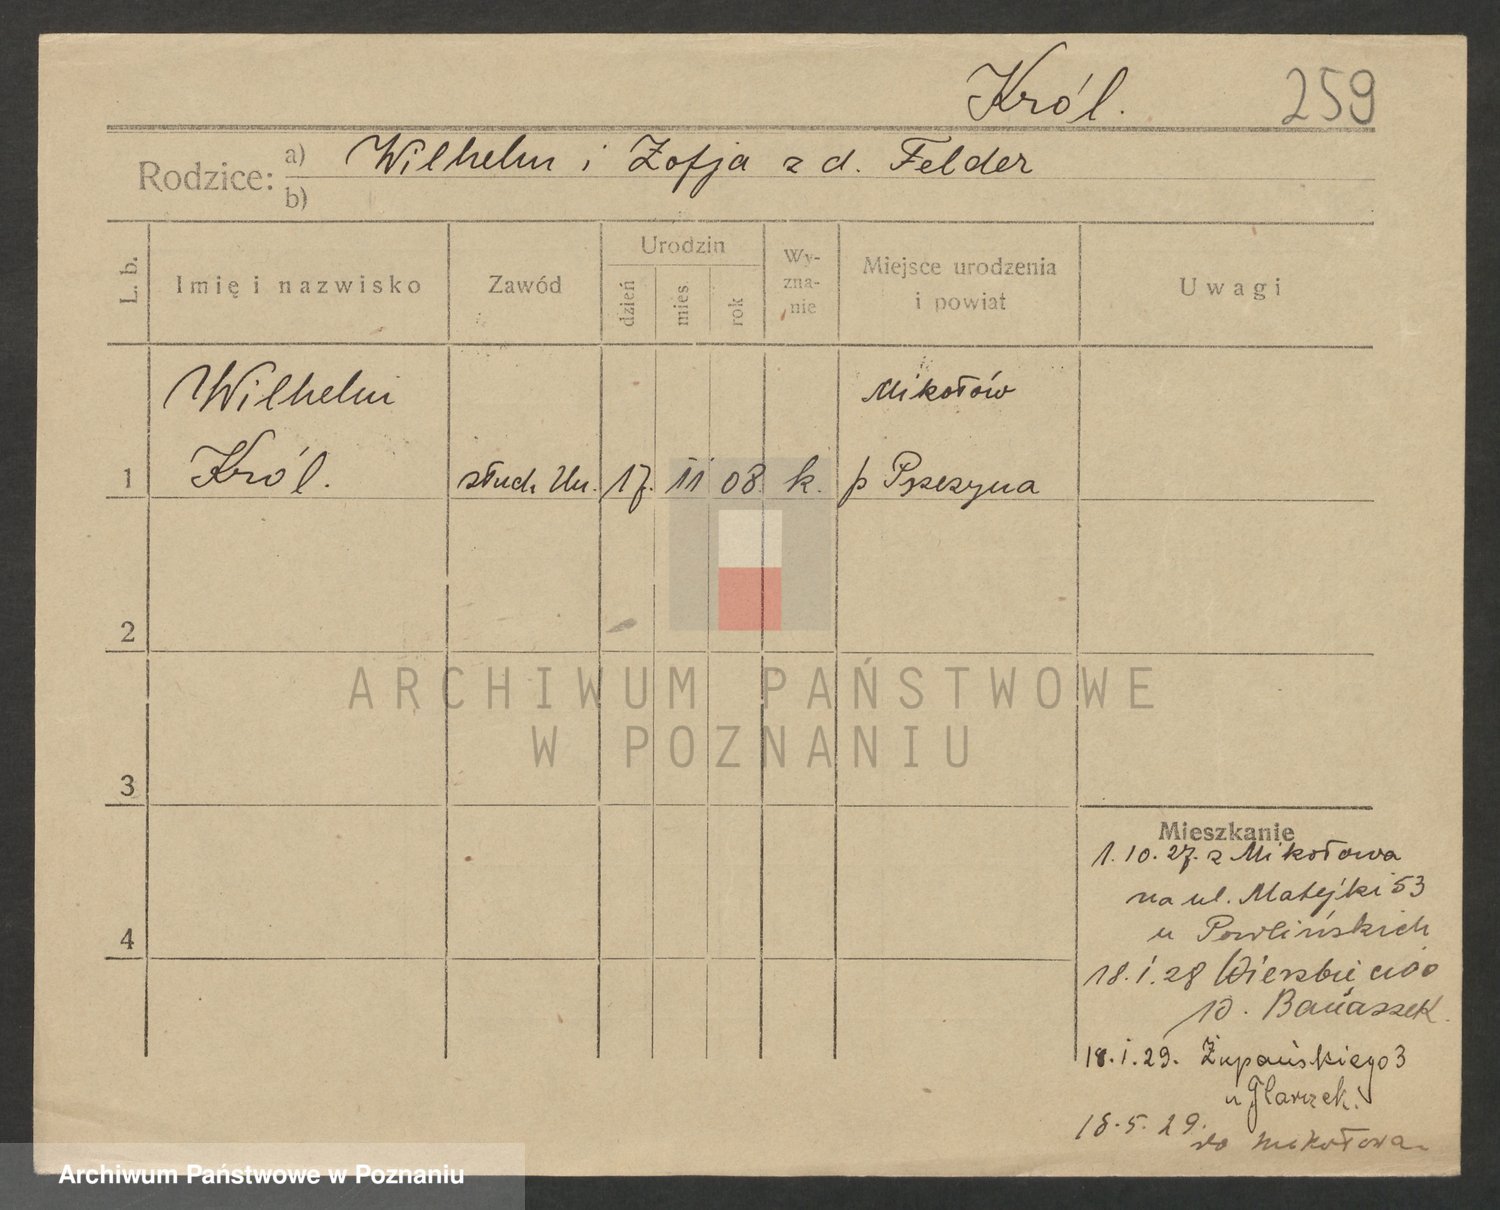 Król.
259
Rodzice: a) Wilhelm i Zofja z d. Felder
b)
L. b.
Imię i nazwisko
Zawód
Urodzin
dzień
mies.
rok
Wy-
zna-
nie
Miejsce urodzenia
i powiat
Uwagi
Wilhelm
Mikołów
1 Król. słuch Un. 17. 11 08. k. p Pszczyna
2
3
4
Mieszkanie
1.10.27. z Mikołowa
na ul. Matejki 53
u Powlińskich
18.1.28 Wierzbięcice
10. Banaszek.
18.1.29. Żupańskiego 3
u
18.5.29.
do Mikołowa
ARCHIWUM PAŃSTWOWE
W POZNANIU
Archiwum Państwowe w Poznaniu